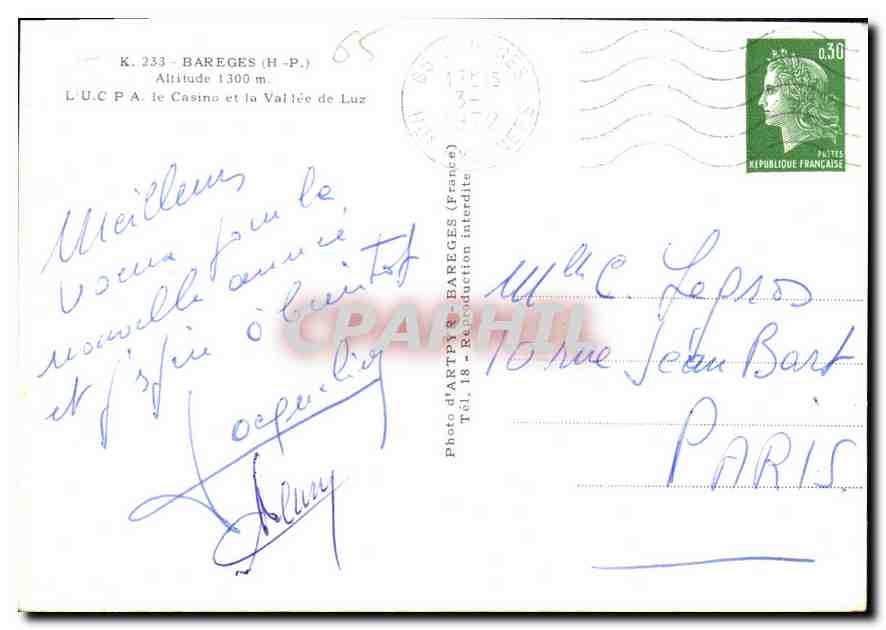 K. 233 - BAREGES (H.-P.)
Altitude 1300 m.
L'U.C.P.A. le Casino et la Vallée de Luz
65
17H15
3-
0,30
POSTES
REPUBLIQUE FRANÇAISE
Meilleurs
voeux pour la
nouvelle année
et j'espère à bientôt
Jacqueline
Photo d'ARTPYR - BAREGES (France)
Tél. 18 - Reproduction interdite
Mlle C. Legros
10 rue Jean Bart
PARIS
CPAPHIL